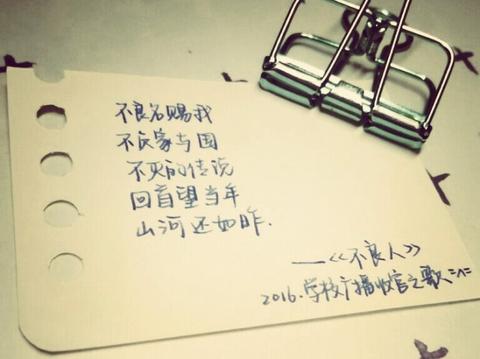 不良名赐我
不良家与国
不灭的传说
回首望当年
山河还如昨.
——《不良人》
2016.学校广播收官之歌=^=